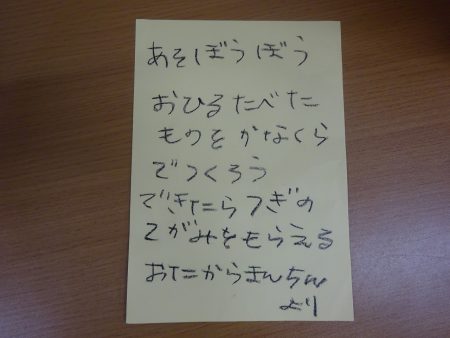 あそぼうぼう
おひるたべた
ものをかなくら
でつくろう
できたらつぎの
てがみをもらえる
おたからまんちん
より